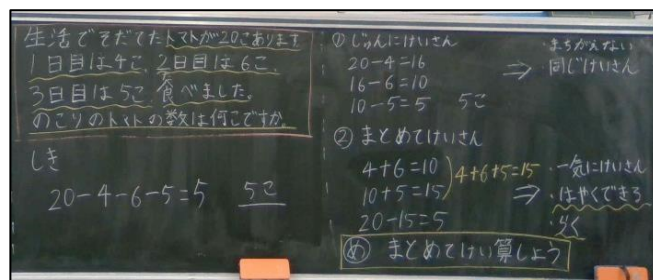 生活でそだてたトマトが20こあります
1日目は4こ、2日目は6こ、
3日目は5こ食べました。
のこりのトマトの数は何こですか。
しき
20-4-6-5=5 5こ
① じゅんにけいさん
20-4=16
16-6=10
10-5=5 5こ
⇒
・まちがえない
同じけいさん
② まとめてけいさん
4+6=10
10+5=15
4+6+5=15
20-15=5
⇒
・一気にけいさん
・はやくできる
・らく
め まとめてけい算しよう